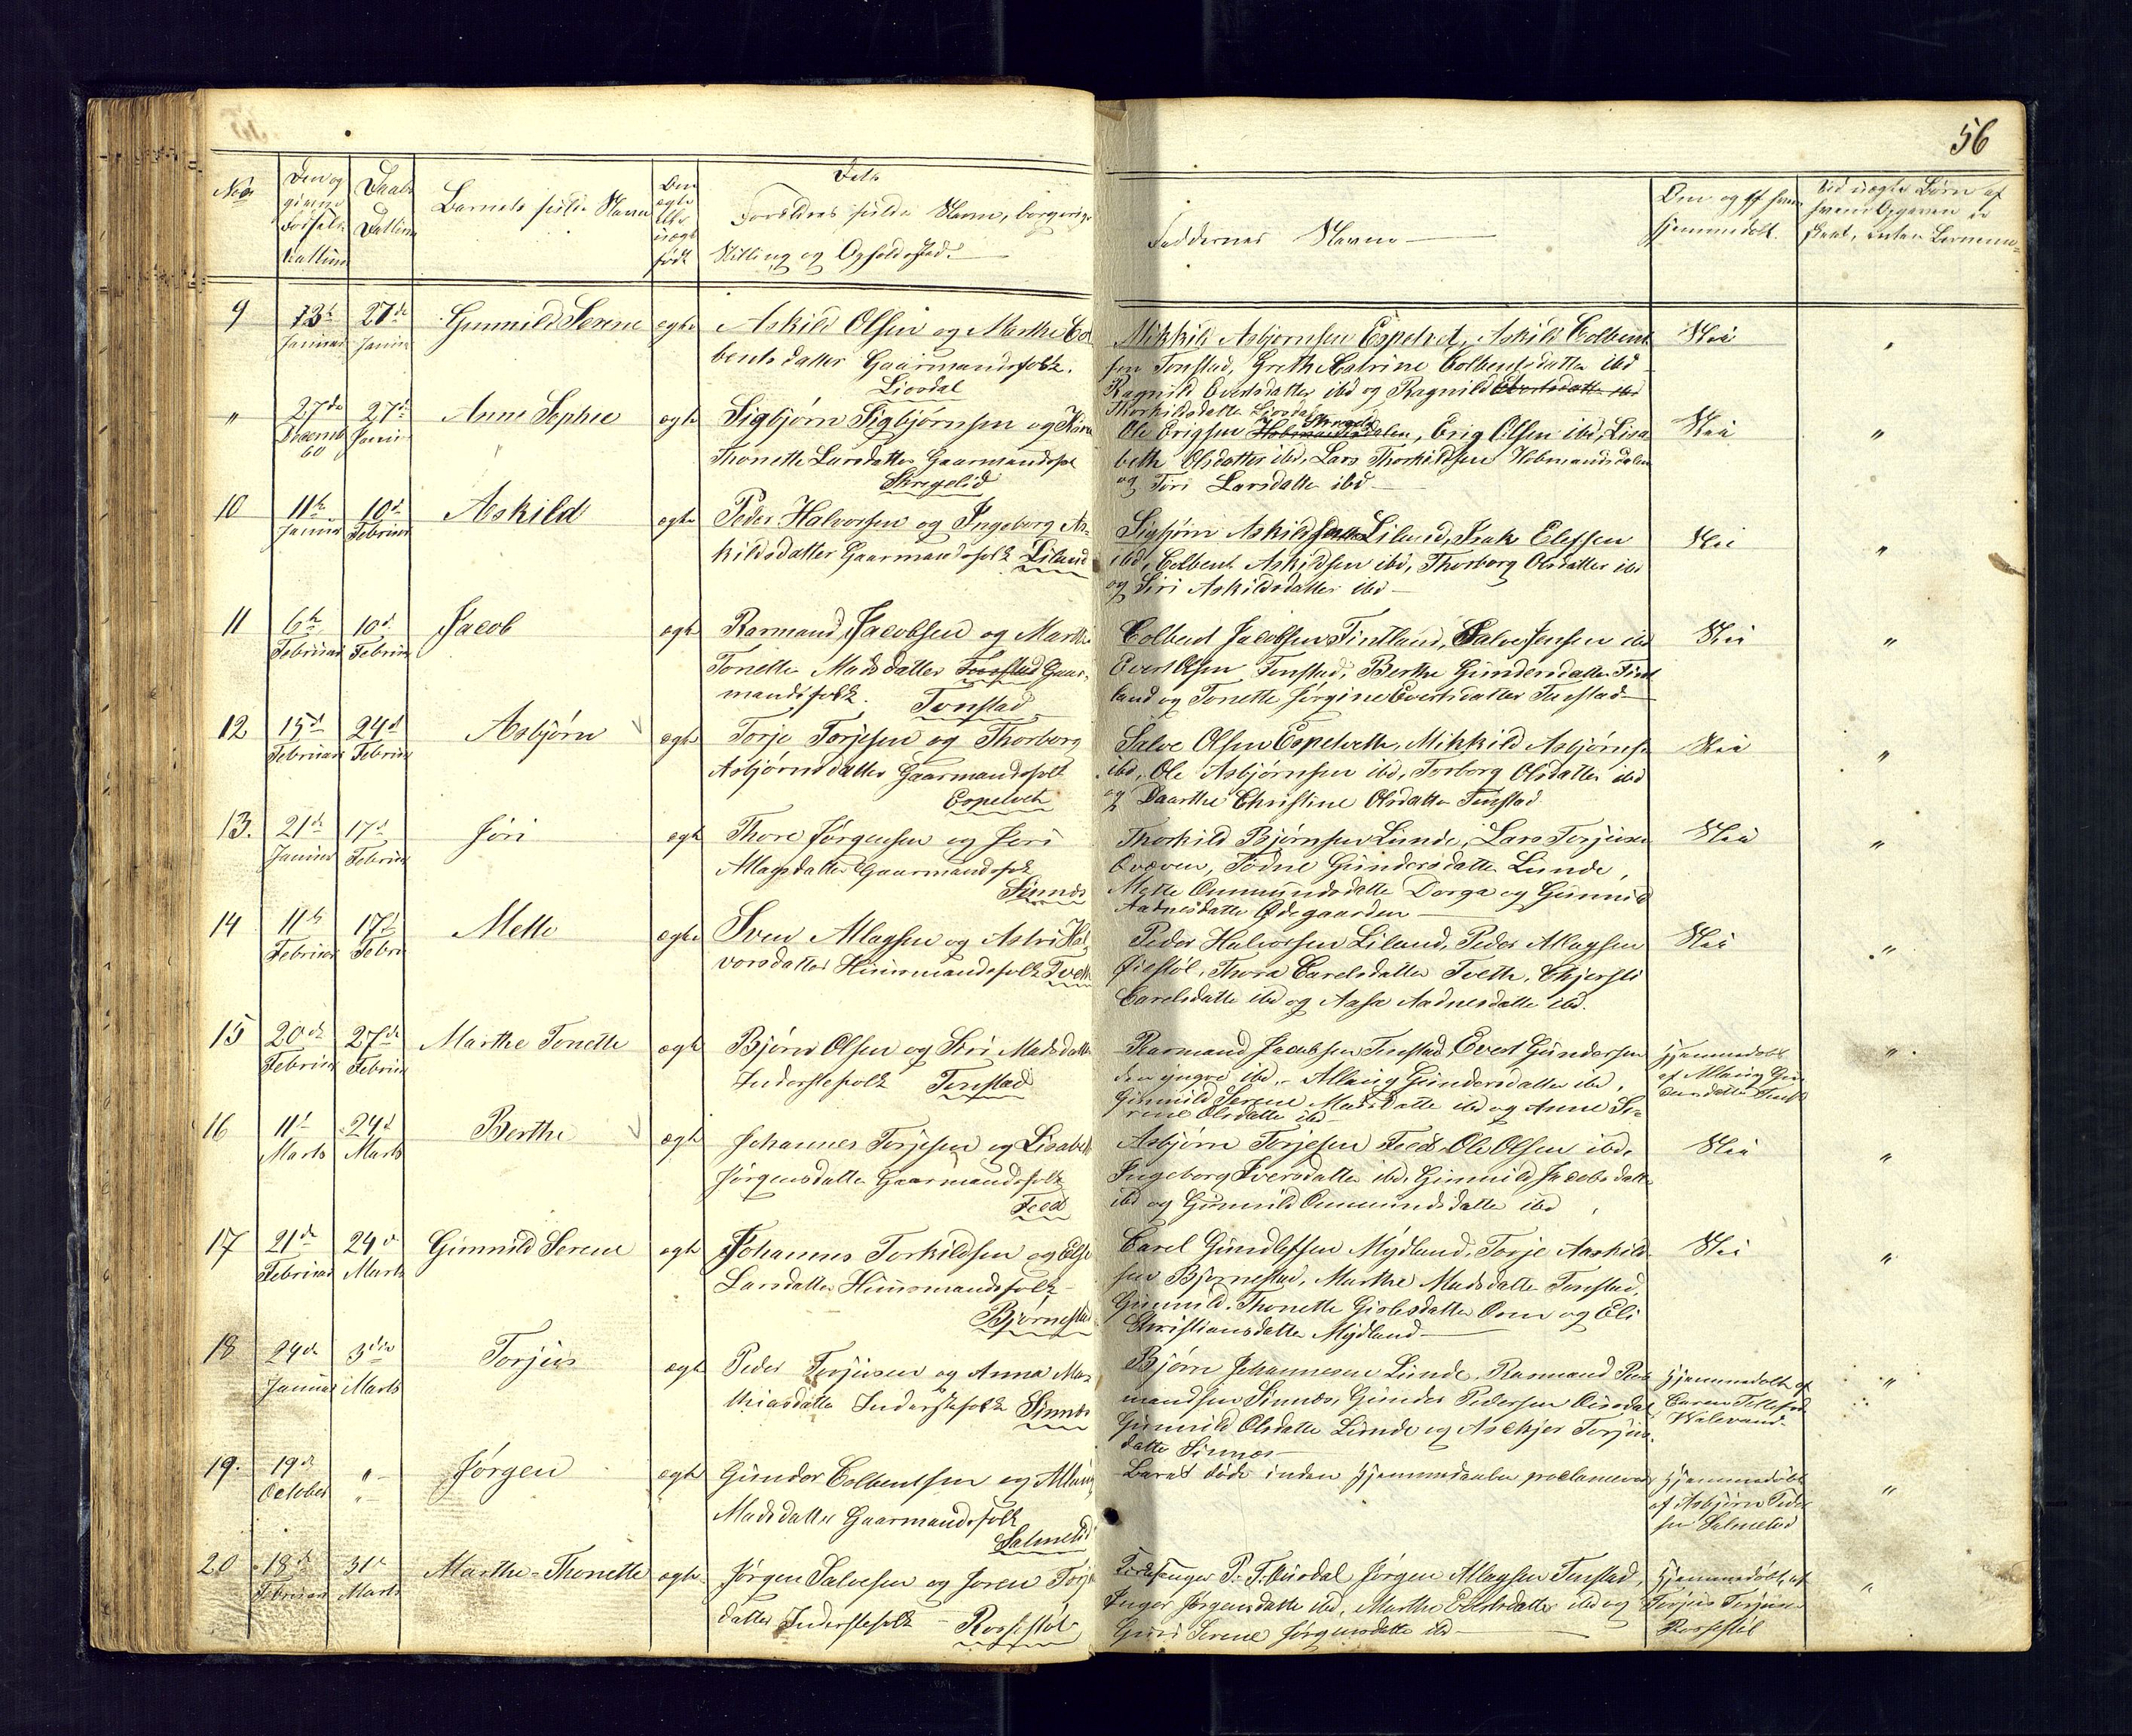 56
No
Den og
givne
Fødsels
Dattum
Daabs
Dattum
Barnets fulde Navn
Om
ægte
eller
uægte
født
Forældres fulde Navn, borgerlige
Stilling og Opholdssted.
Faddernes Navne
hjemmedøbt.
9
13de
Januar
27de
Janu
Gunnild Serene
ægte
Askild Olsen og Marthe Col
bents datter Gaarmandsfolk.
Liosdal
Mikkild Asbjørnsen Espetvet, Askild Colbent
sen Tonstad, Grethe Catrine Colbentsdatter ibd
Ragnild Evertsdatter ibd og Ragnild Evertsdatter ibd
Thorkildsdatter Liosdal
Nei
"
"
27de
Decemb
60
27d
Janu
Anne Sophie
ægte
Sigbjørn Sigbjørnsen og
Thonette Larsdatter Gaarmandsfol
Skregelid
Ole Erigsen Skregelid, Erig Olsen ibd, Lisa
beth Olsdatter ibd, Lars Thorkildsen Hobmandsdalen
og Siri Larsdatter ibd
Nei
"
10
11te
Januar
10d
Februar
Askild
ægte
Peder Halvorsen og Ingeborg As-
kildsdatter Gaarmandsfolk Liland
Sigbjørn Askildsen Liland, Isak Elefsen
ibd, Colbent Askildsen ibd, Thorborg Olsdatter ibd
og Siri Askildsdatter ibd
Nei
"
11
6te
Februar
10d
Februar
Jacob
ægte
Rasmand Jacobsen og Marthe
Tonette Madsdatter Tonstad Gaar-
mandsfolk. Tonstad
Colbent Jacobsen Fintland, Salve Jensen ibd
Evert Olsen Tonstad, Berthe Gundersdatter Fint
land og Tonette Jørgine Evertsdatter Tonstad
Nei
"
12
15d
Februar
24d
Februar
Asbjørn
ægte
Torje Torjesen og Thorborg
Asbjørnsdatter Gaarmandsfolk
Espetvet
Salve Olsen Espetveth, Mikkild Asbjørnse
ibd, Ole Asbjørnsen ibd, Torborg Olsdatter ibd
og Daarthe Christine Olsdatter Tonstad
Nei
"
13.
21de
Januar
17d
Februar
Jøri
ægte
Thore Jørgensen og Jøri
Allagsdatter Gaarmandsfolk
Sinnes
Thorkild Bjørnsen Lunde, Lars Torjusen
Qvæven, Tødne Gundersdatter Lunde,
Mette Ommundsdatter Dorga og Gunnild
Aadnesdatter Ødegaarden
Nei
"
14
11te
Februar
17d
Febru
Mette
ægte
Sven Allagsen og Astri Hal
vorsdatter Huusmandsfolk Tveth
Peder Halvorsen Liland, Peder Allagsen
Øiestøl, Thora Carelsdatter Tveth, Chjersti
Carelsdatter ibd og Aasa Aadnesdatter ibd.
Nei
"
15
20de
Februar
27de
Februar
Marthe Tonette
ægte
Bjørn Olsen og Siri Madsdatter
Inderstefolk Tonstad
Rasmand Jacobsen Tonstad, Evert Gundersen
den yngre ibd, Allaug Gundersdatter ibd,
Gunnild Serene Madsdatter ibd og Anne Se=
rine Olsdatter ibd
Hjemmedøbt
af Allaug Gun
dersdatter Tonst
"
16
11d
Marts
24d
Marts
Berthe
ægte
Johannes Torjesen og Lisabet
Jørgensdatter Gaarmandsfolk
Feed
Asbjørn Torjesen Feed, Ole Olsen ibd,
Ingeborg Iversdatter ibd, Gunnild Jacobsdatter
ibd og Gunnild Ommundsdatter ibd
Nei
"
17
21de
Februar
24d
Marts
Gunnild Serene
ægte
Johannes Torkildsen og Else
Larsdatter Huusmandsfolk
Bjørnestad
Carel Gundlefsen Mydland, Torje Aaskild
sen Bjørnestad, Marthe Madsdatter Tonstad,
Gunnild Thonette Gislesdatter Osen og Eli
Christiansdatter Mydland
Nei
"
18
24de
Januar
3die
Marts
Torjus
ægte
Peder Torjusen og Anna Ma-
thiasdatter Inderstefolk Sinnes
Bjørn Johannesen Lunde, Rasmand Ras
mandsen Sinnes, Gunder Pedersen Ousdal
Gunnild Olsdatter Lunde og Aschjer Torjus
datter Sinnes
Hjemmedøbt af
"
19.
19de
October
"
"
Jørgen
ægte
Gunder Colbentsen og Allaug
Madsdatter Gaarmandsfolk
Salmelid
Barnet døde inden Hjemmedaaben proclameres
Hjemmedøbt
af Asbjørn Peder
sen Salmelid
"
20
18d
Februar
31d
Marts
Marthe=Thonette
ægte
Jørgen Salvesen og Joren Torju
datter Inderstefolk Rossestøl
P. T. Ousdal, Jørgen Allagsen Tonstad,
Inger Jørgensdatter ibd, Marthe Evertsdatter ibd og
Guri Serene Jørgensdatter ibd
Hjemmedøbt af
Torjus Torjusen
Rossestøl
"